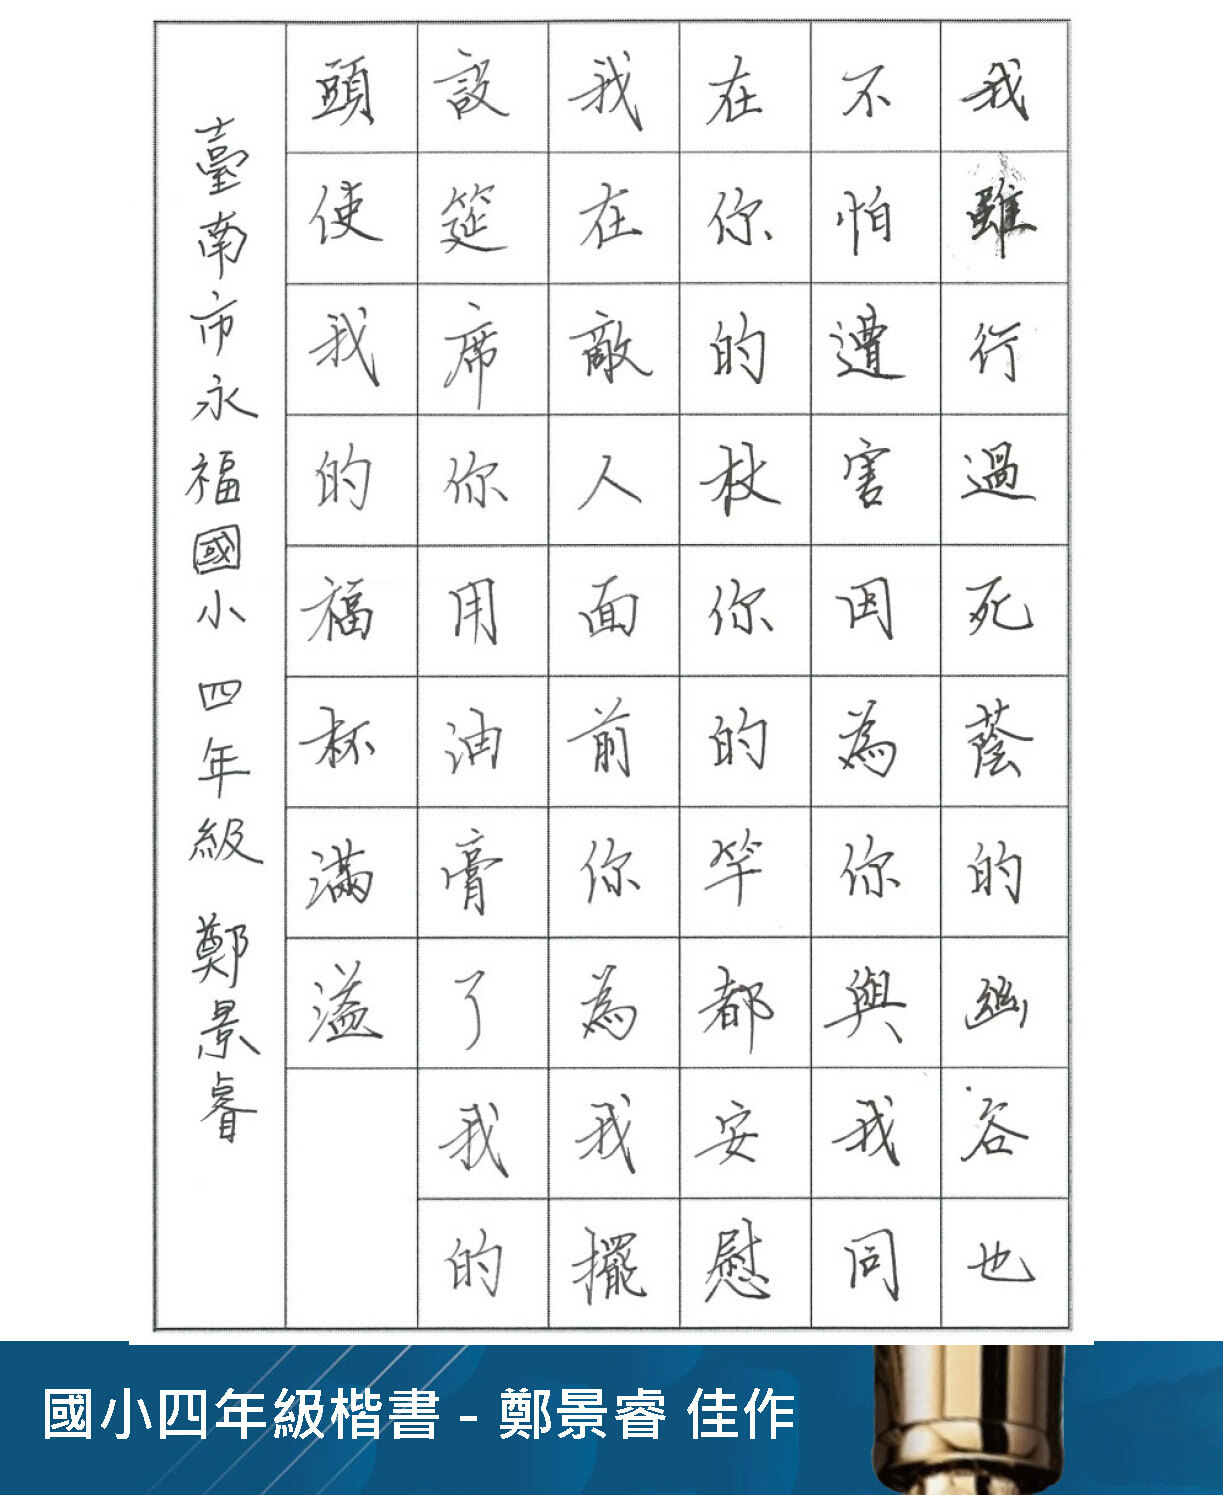 我雖行過死蔭的幽谷也
不怕遭害因為你與我同
在你的杖你的竿都安慰
我在敵人面前你為我擺
設筵席你用油膏了我的
頭使我的福杯滿溢
臺南市永福國小 四年級 鄭景睿
國小四年級楷書 - 鄭景睿 佳作